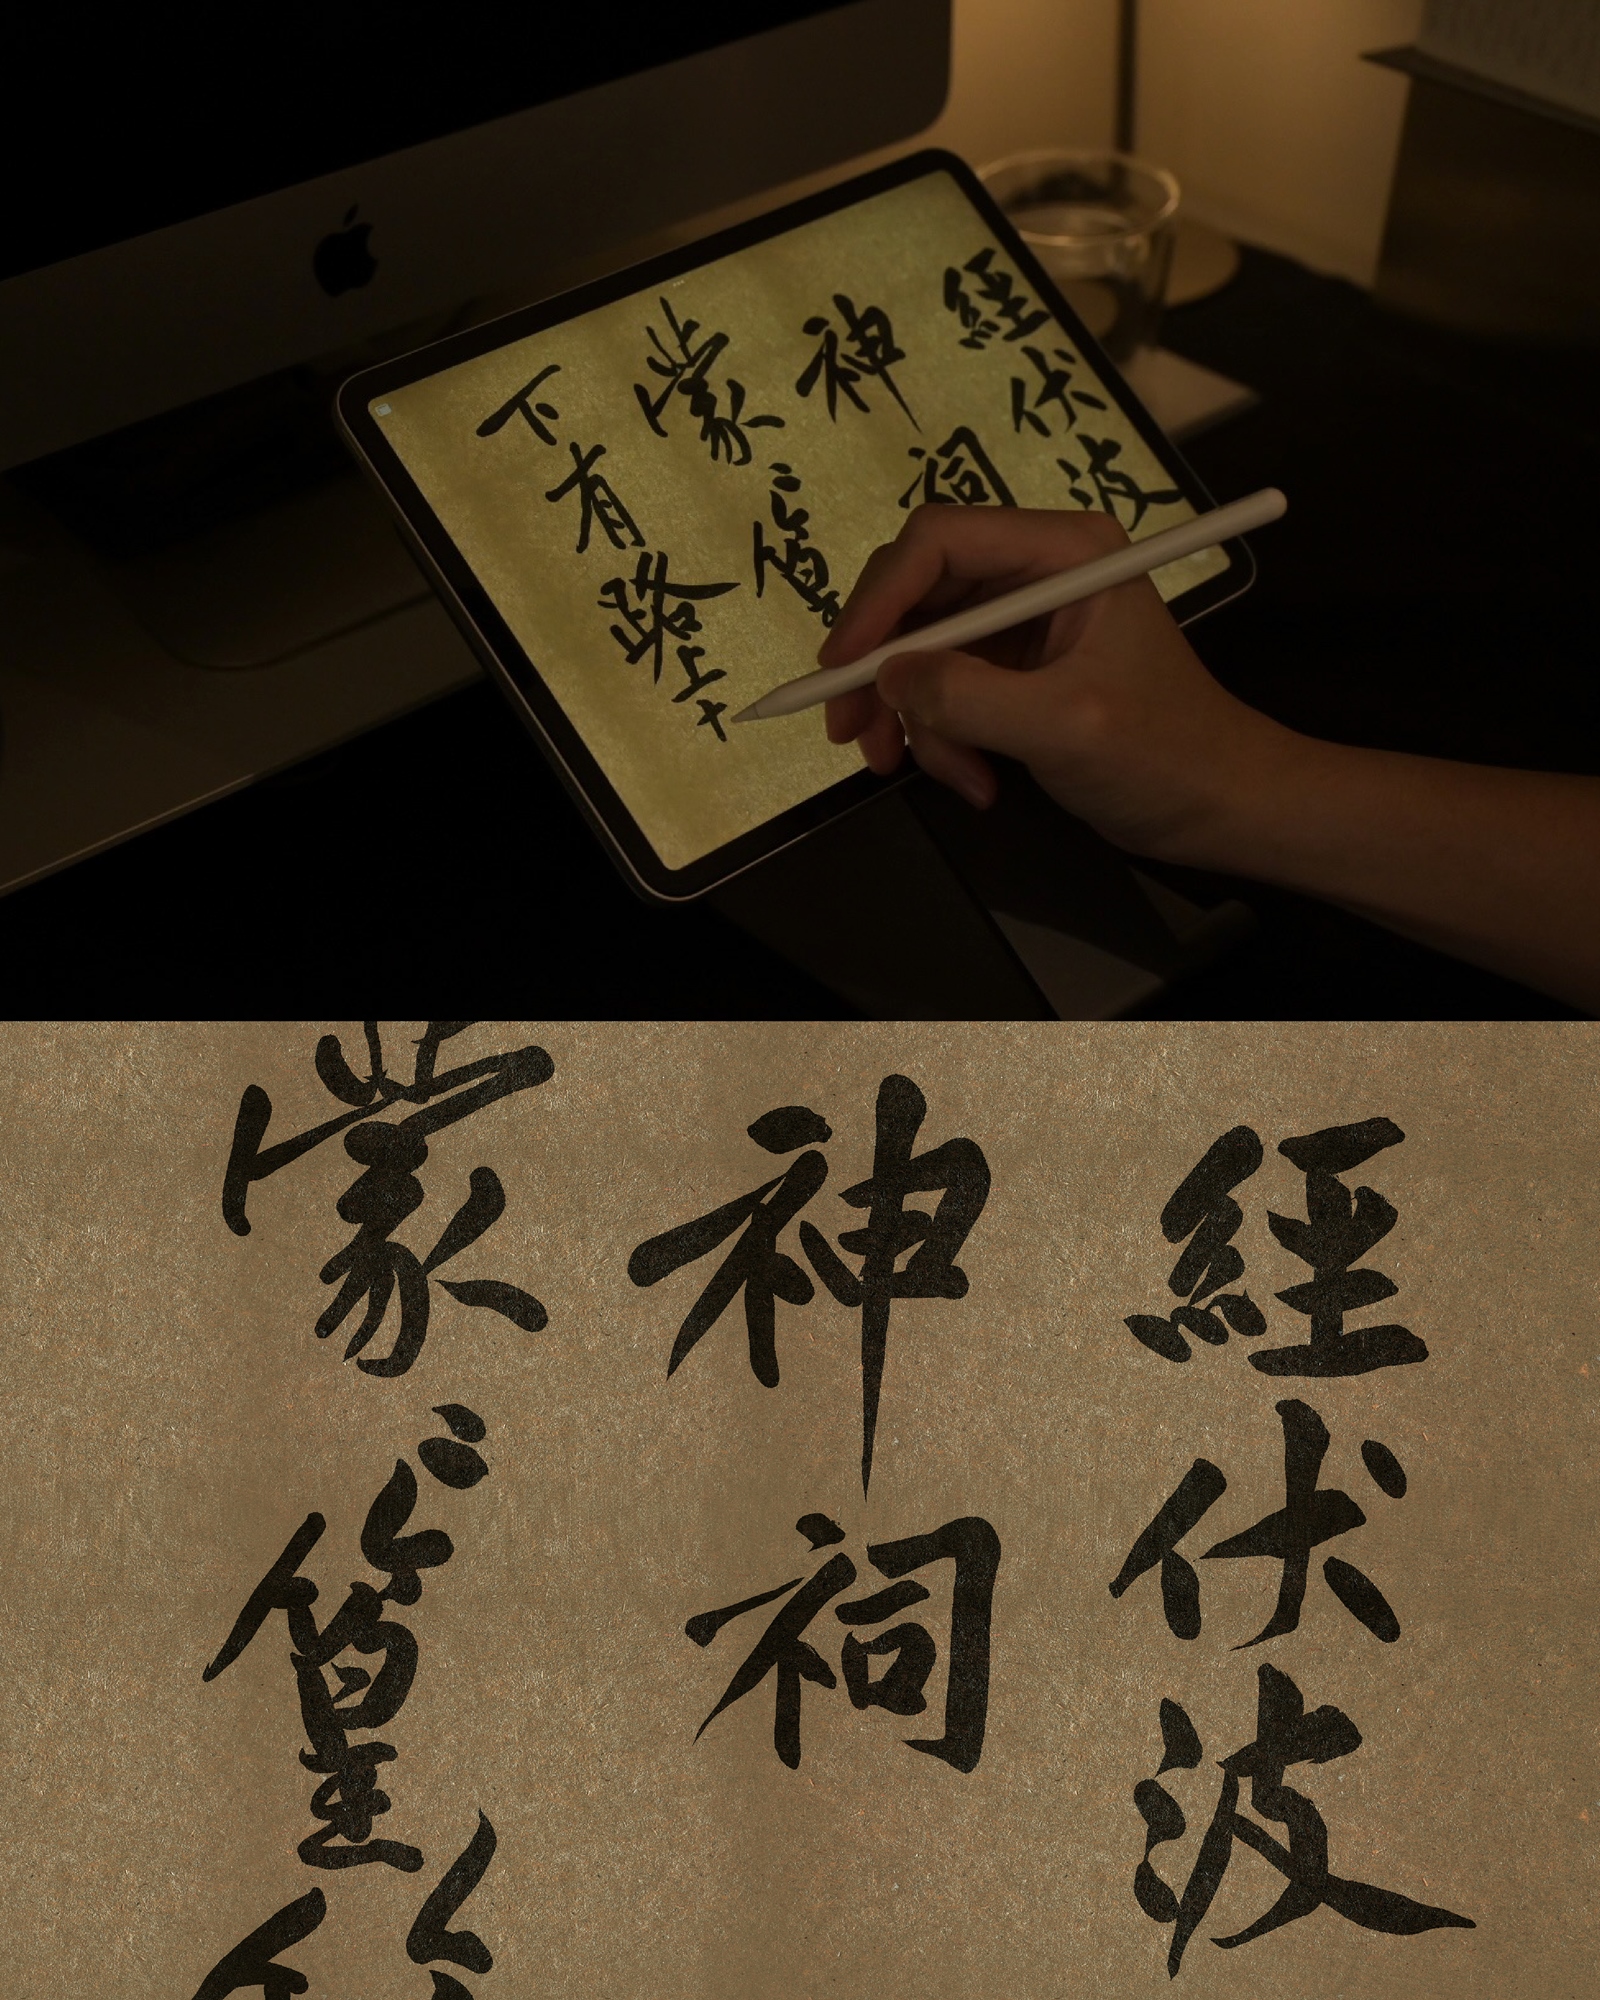 經伏波
神祠
蒙〻篁
下有路上十
經伏波
神祠
蒙〻篁